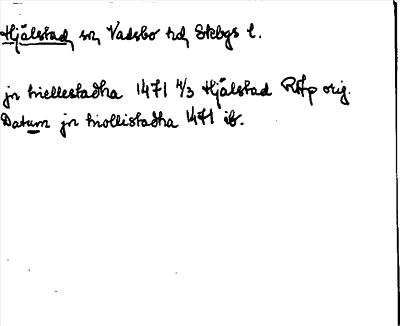 Hjälstad sn, Vadsbo hd, Skbgs l.
jn hiellestadha 1471 4/3 Hjälstad RAp orig.
Datum jn hiollistadha 1471 ib.